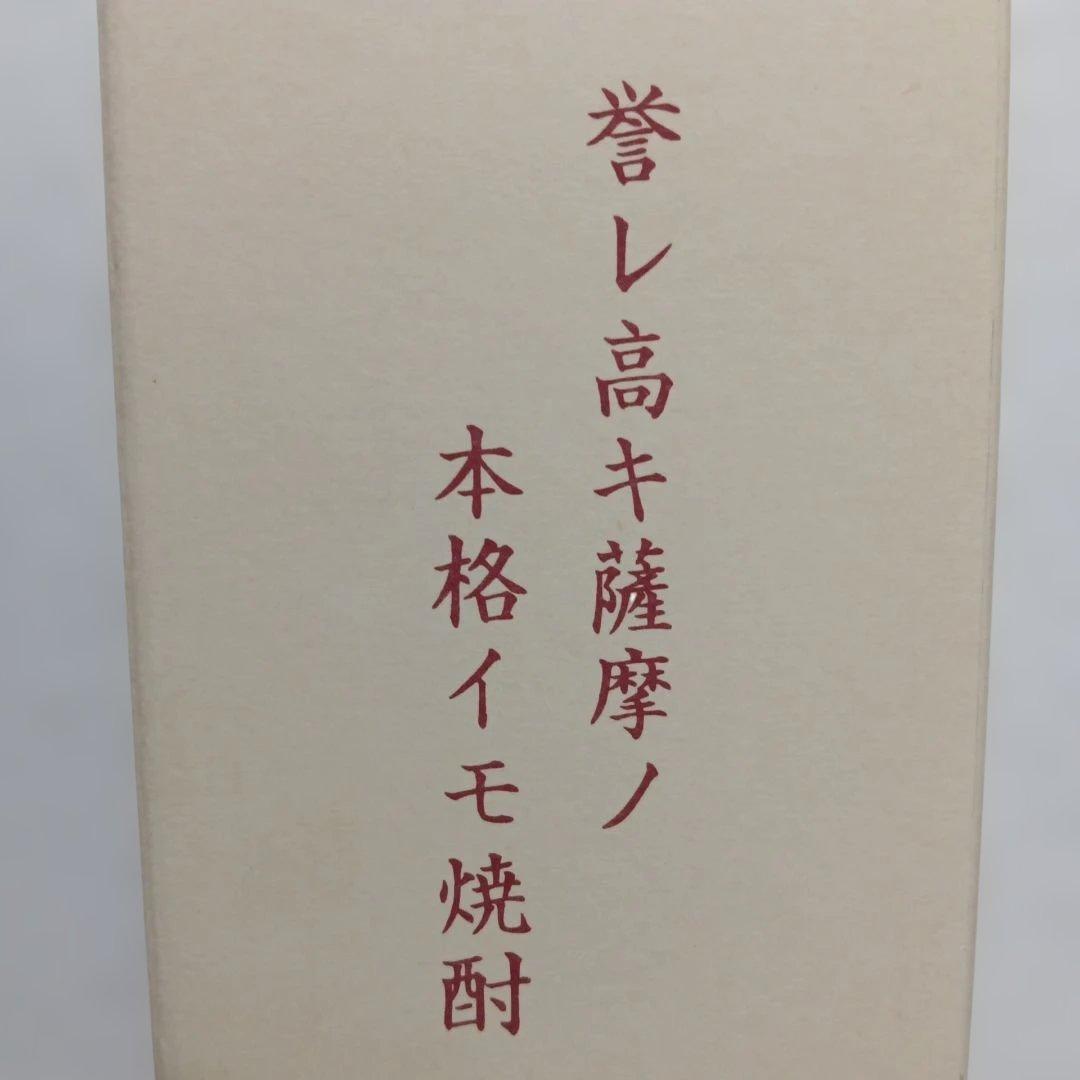 誉レ高キ薩摩ノ
本格イモ焼酎